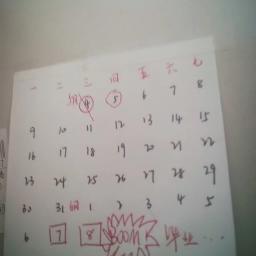 一 二 三 四 五 六 七
5月 4 5 6 7 8
9 10 11 12 13 14 15
16 17 18 19 20 21 22
23 24 25 26 27 28 29
30 31 6月 1 2 3 4 5
6 7 8 BOOM 毕业...